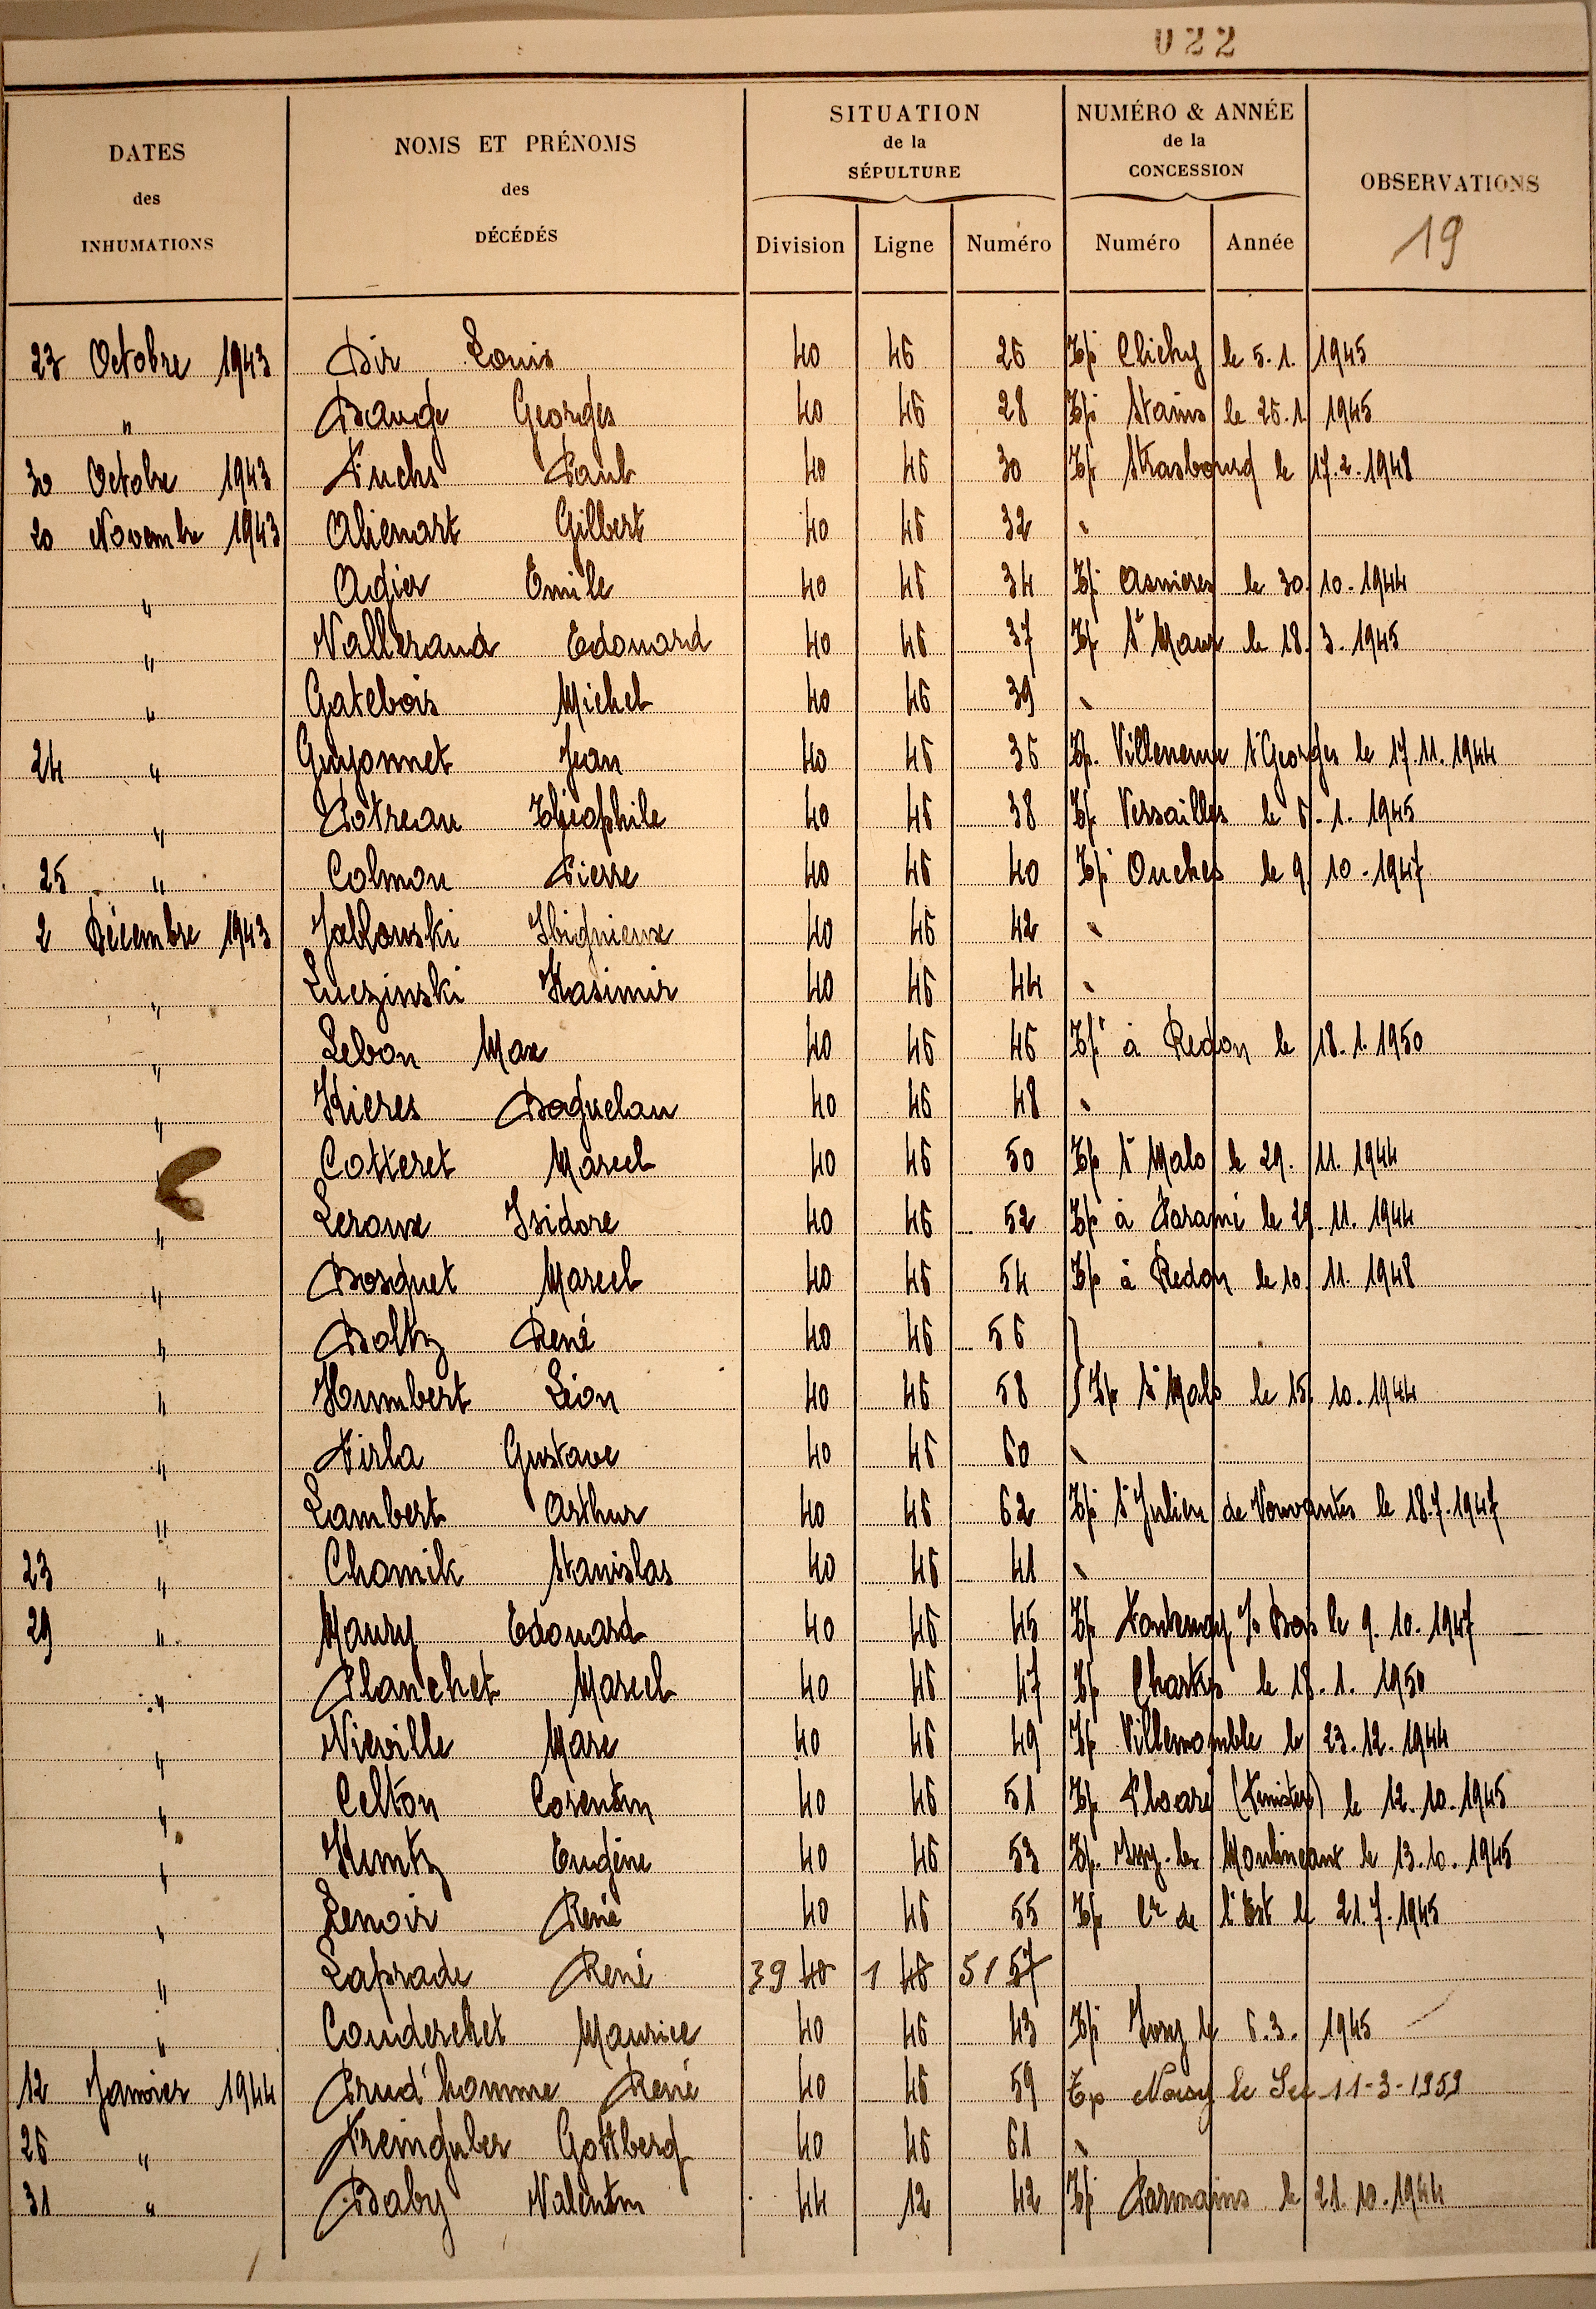 022
DATES des INHUMATIONS | NOMS ET PRÉNOMS des DÉCÉDÉS | SITUATION de la SÉPULTURE | NUMÉRO & ANNÉE de la CONCESSION | OBSERVATIONS
Division | Ligne | Numéro | Numéro | Année | 19
23 Octobre 1943 Bir Louis 40 46 26 Tp Clichy le 5.1.1945
" Bauge Georges 40 46 28 Tp Stains le 26.1.1945
30 Octobre 1943 Fuchs Paul 40 46 30 Tp Strasbourg le 17.2.1948
20 Novembre 1943 Alienart Gilbert 40 46 32
" Adier Emile 40 46 34 Tp Asnieres le 30.10.1944
" Vallerand Edouard 40 46 37 Tp St Maur le 18.3.1945
" Gatebois Michel 40 46 39
24 " Guyonnet Jean 40 46 36 Tp. Villeneuve St Georges le 17.11.1944
" Botreau Théophile 40 46 38 Tp Versailles le 6.1.1945
25 " Colmon Pierre 40 46 40 Tp Ouches le 9.10.1947
2 Décembre 1943 Jablonski 40 46 42
" Luczinski Kasimir 40 46 44
" Lebon Max 40 46 46 Tp à Redon le 18.1.1950
" Kieres Boguslau 40 46 48
" Cotteret Marcel 40 46 50 Tp St Malo le 29.11.1944
" Leroux Isidore 40 46 52 Tp à Paramé le 29.11.1944
" Bosquet Marcel 40 46 54 Tp à Redon le 10.11.1948
" Boltz René 40 46 56
" Humbert Léon 40 46 58 } Tp St Malo le 15.10.1944
" Firla Gustave 40 46 60
" Lambert Arthur 40 46 62 Tp St Julien de Vouvantes le 18.7.1947
23 " Chomik Stanislas 40 46 41
29 " Maury Edouard 40 46 45 Tp Fontenay s/s Bois le 9.10.1947
" Planchet Marcel 40 46 47 Tp Chartres le 18.1.1950
" Nieville Marc 40 46 49 Tp Villemomble le 23.12.1944
" Celton Corentin 40 46 51 Tp Ploaré (Finister) le 12.10.1945
" Kuntz Eugène 40 46 53 Tp. Issy-les Moulineaux le 13.10.1945
" Lenoir René 40 46 55 Tp Cre de l'Est le 21.7.1945
" Laprade René 39 40 1 46 51 57
" Couderchet Maurice 40 46 43 Tp Ivry le 6.3.1945
12 Janvier 1944 Prud'homme René 40 46 59 Tp Noisy le Sec 11-3-1959
26 " Freinguber Gottberg 40 46 61
31 " Baby Valentin 44 12 42 Tp Parmains le 21.10.1944